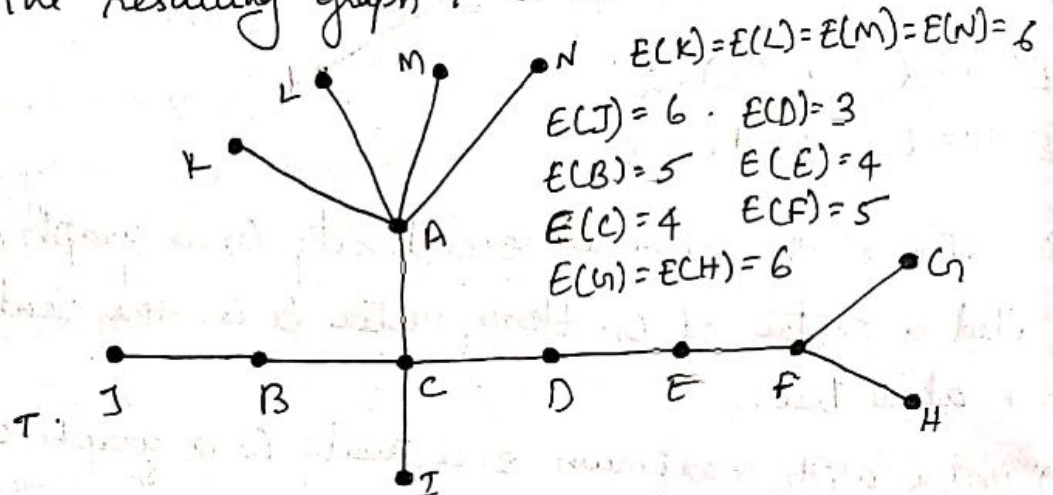 The resulting graph,
E(K)=E(L)=E(M)=E(N)=6
E(J)=6 . E(D)=3
E(B)=5 E(E)=4
E(C)=4 E(F)=5
E(G)=E(H)=6
L
M
N
K
A
G
J
B
C
D
E
F
H
T.
I